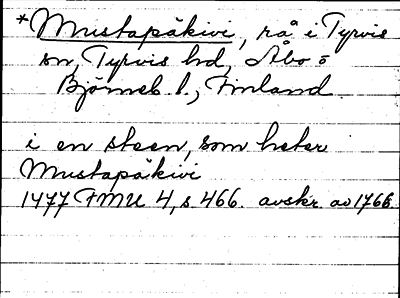 *Mustapäkivi, rå i Tyrvis
sn, Tyrvis hd, Åbo o
Björneb. l., Finland
i en steen, som heter
Mustapäkivi
1477 FMU 4, s. 466. avskr. av 1766